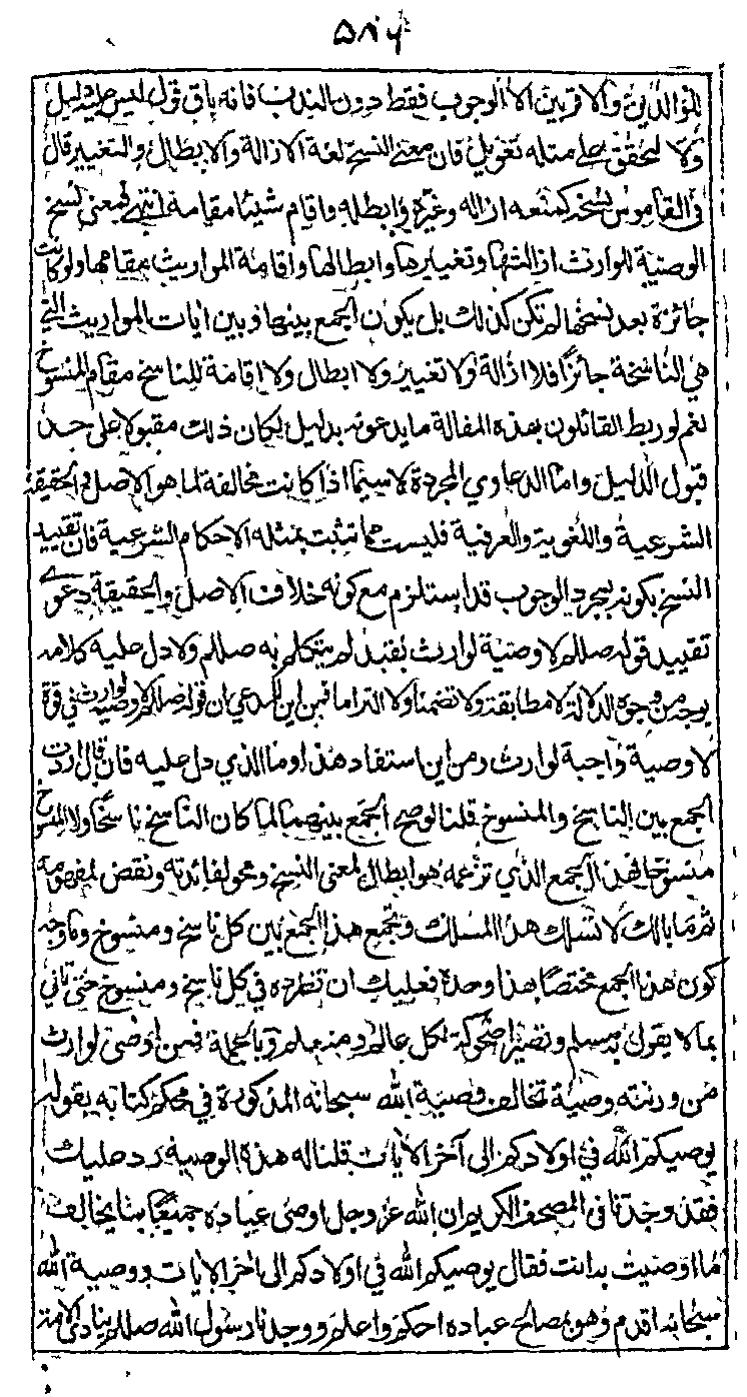 ۵۸۴
للوالدين والاقربين الا الوجوب فقط دون الندب فانه باق قول ليس عليه دليل
ولا لمحقق على مثله تعويل فان معنى النسخ لغة الازالة والابطال والتغيير قال
فى القاموس نسخه كمنعه ازاله وغيره وابطله واقام شيئا مقامه انتهى فمعنى نسخ
الوصية للوارث ازالتها وتغييرها وابطالها واقامة المواريث مقامها ولو كانت
جائزة بعد نسخها لم تكن كذلك بل يكون الجمع بينها وبين ايات المواريث التي
هي الناسخة جائزا فلا ازالة ولا تغيير ولا ابطال ولا اقامة للناسخ مقام المنسوخ
نعم لو ربط القائلون بهذه المقالة ما يدعونه بدليل لكان ذلك مقبولا على حد
قبول الدليل واما الدعاوي المجردة لا سيما اذا كانت مخالفة لما هو الاصل في الحقيقة
الشرعية واللغوية والعرفية فليست مما تثبت بمثله الاحكام الشرعية فان تقييد
النسخ بكونه لمجرد الوجوب قد استلزم مع كونه خلاف الاصل والحقيقة دعوى
تقييد قوله صللم لا وصية لوارث بقيد لم يتكلم به صللم ولا دل عليه كلامه
بوجه من وجوه الدلالة لا مطابقة ولا تضمنا ولا التزاما فمن اين للمدعي ان قوله صللم لا وصية لوارث في قوة
لا وصية واجبة لوارث ومن اين استفاد هذا وما الذي دل عليه فان قال اردت
الجمع بين الناسخ والمنسوخ قلنا لو صح الجمع بينهما لما كان الناسخ ناسخا ولا المنسوخ
منسوخا فهذا الجمع الذي تزعمه هو ابطال لمعنى النسخ ومحو لفائدته ونقض لمفهومه
ثم ما بالك لا تسلك هذا المسلك وتجمع هذا الجمع بين كل ناسخ ومنسوخ وما وجه
كون هذا الجمع مختصا بهذا وحده فعليك ان تطرده في كل ناسخ ومنسوخ حتى تأتي
بما لا يقول به مسلم وتصير اضحوكة لكل عالم ومتعلم وبالجملة فمن اوصى لوارث
من ورثته وصية تخالف وصية الله سبحانه المذكورة في محكم كتابه بقوله
يوصيكم الله في اولادكم الى آخر الايات قلنا له هذه الوصية رد عليك
فقد وجدنا فى المصحف الكريم ان الله عز وجل اوصى عباده جميعا بما يخالف
ما اوصيت به انت فقال يوصيكم الله في اولادكم الى اخر الايات ووصية الله
سبحانه اقدم وهو بمصالح عباده احكم واعلم ووجدنا رسول الله صللم ينادى الامة